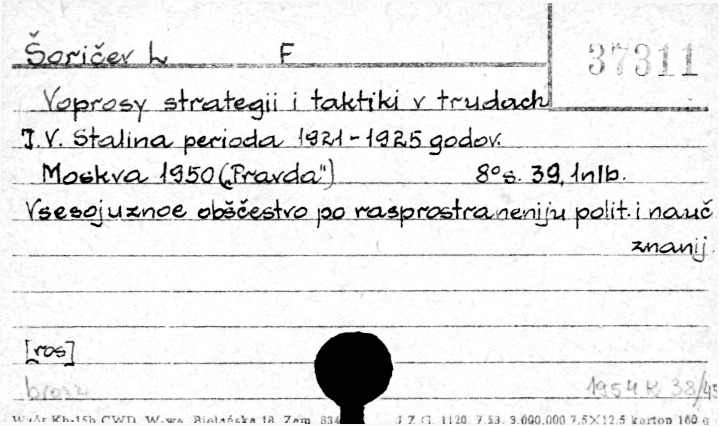 Šoričev L F
37311
Voprosy strategii i taktiki v trudach
J.V. Stalina perioda 1921-1925 godov.
Moskva 1950 („Pravda") 8° s. 39, 1nlb.
Vsesojuznoe obščestvo po rasprostraneniju polit. i nauč.
znanij.
[ros]
brosz 1954 K 38/45
Wzór Kb-15b CWD, W-wa, Bielańska 18, Zam. 834 J.Z.G. 1120. 7.53. 3.000.000 7,5×12,5 karton 160 g